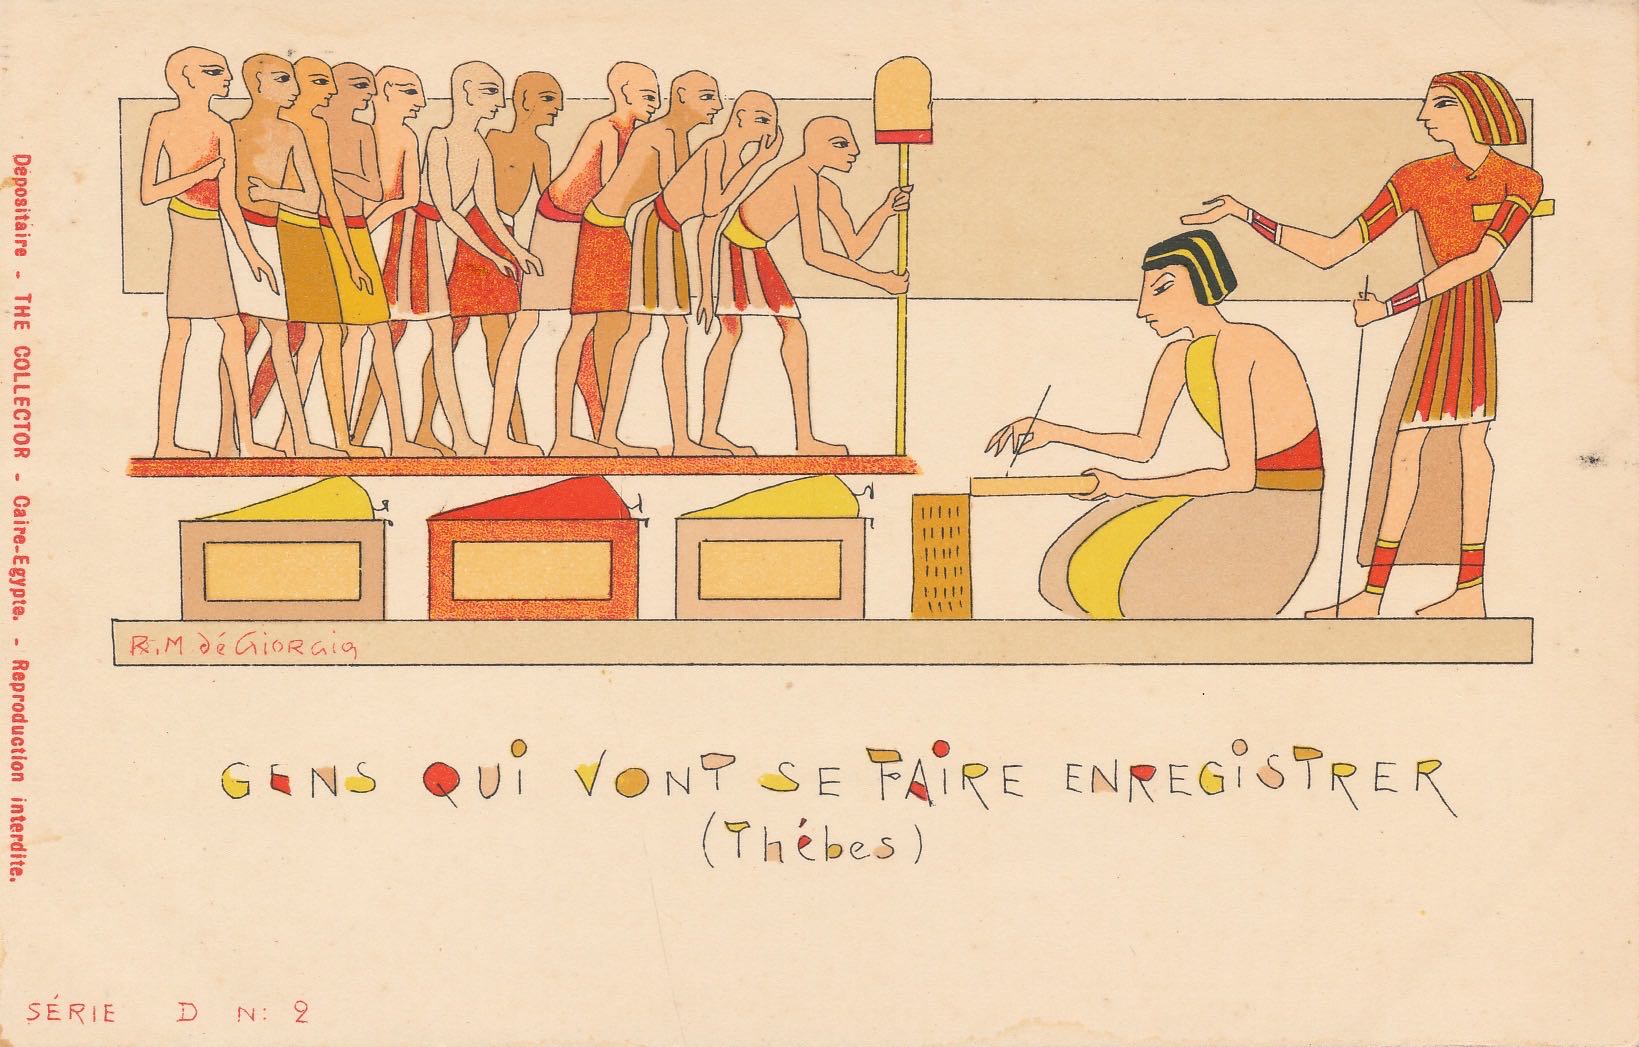 Dépositaire - THE COLLECTOR - Caire-Egypte. - Reproduction interdite.
R.M dé GiORGiO
GENS QUI VONT SE FAIRE ENREGISTRER
(Thébes)
SÉRIE D N: 2